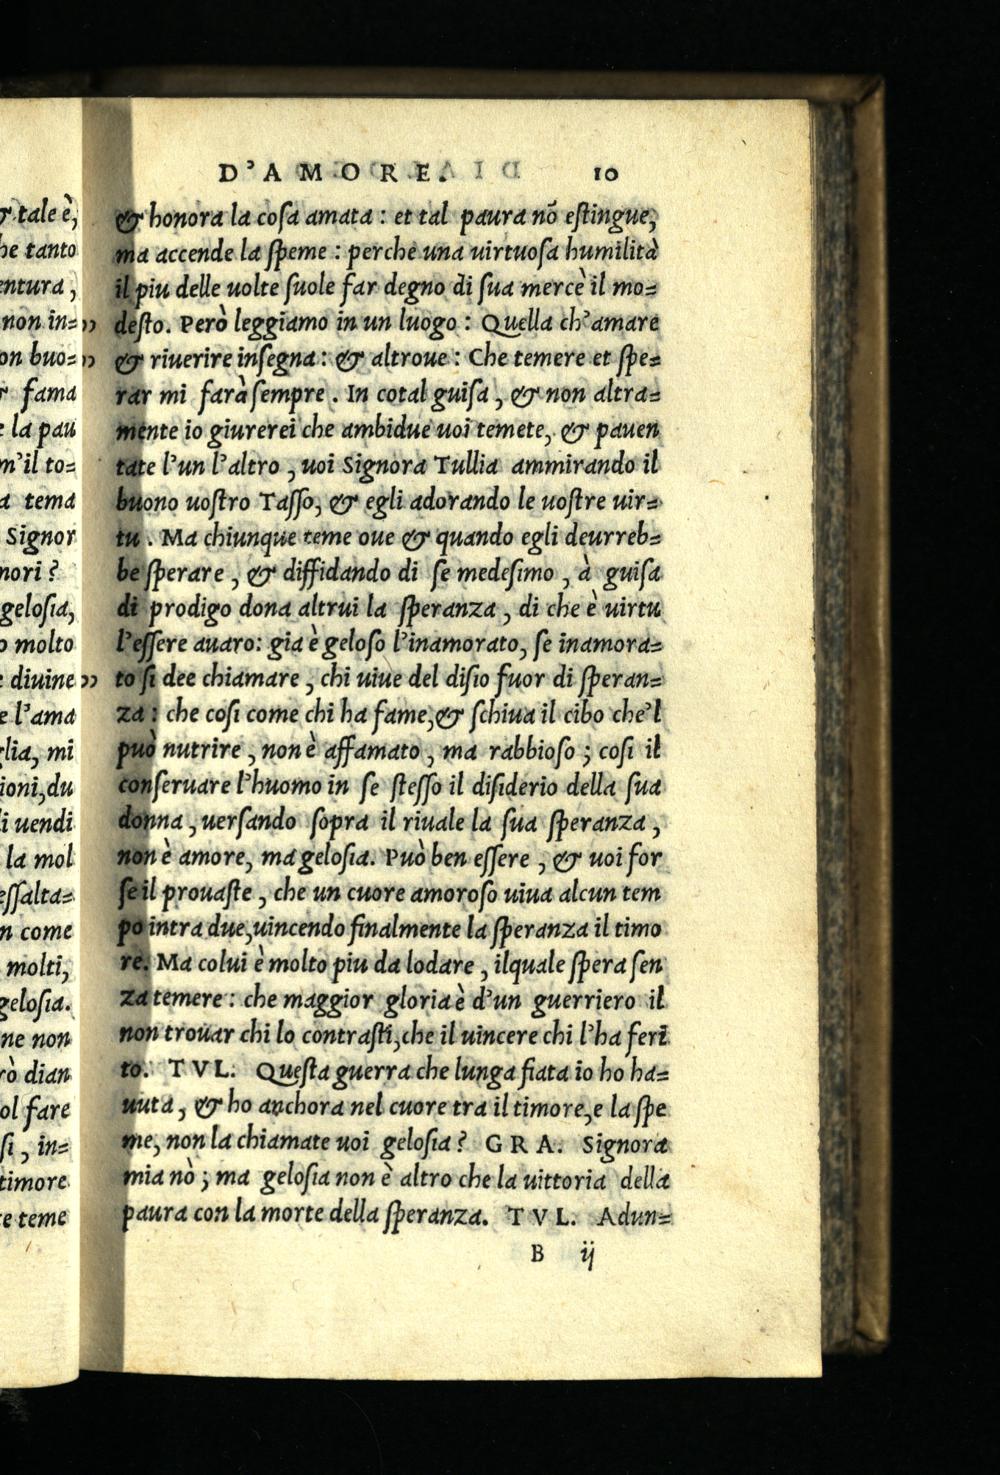 D'AMORE. 10
& honora la cosa amata : et tal paura nō estingue,
ma accende la speme : perche una uirtuosa humilità
il piu delle uolte suole far degno di sua mercè il mo=
desto. Però leggiamo in un luogo : Quella ch'amare
& riuerire insegna : & altroue : Che temere et spe=
rar mi farà sempre . In cotal guisa , & non altra=
mente io giurerei che ambidue uoi temete, & pauen
tate l'un l'altro , uoi Signora Tullia ammirando il
buono uostro Tasso, & egli adorando le uostre uir=
tu . Ma chiunque teme oue & quando egli deurreb=
be sperare , & diffidando di se medesimo , à guisa
di prodigo dona altrui la speranza , di che è uirtu
l'essere auaro: gia è geloso l'inamorato, se inamora=
to si dee chiamare , chi uiue del disio fuor di speran=
za : che cosi come chi ha fame,& schiua il cibo che'l
può nutrire , non è affamato , ma rabbioso ; cosi il
conseruare l'huomo in se stesso il disiderio della sua
donna , uersando sopra il riuale la sua speranza ,
non è amore, ma gelosia. Può ben essere , & uoi for
se il prouaste , che un cuore amoroso uiua alcun tem
po intra due,uincendo finalmente la speranza il timo
re. Ma colui è molto piu da lodare , ilquale spera sen
za temere : che maggior gloria è d'un guerriero il
non trouar chi lo contrasti,che il uincere chi l'ha feri
to. TVL. Questa guerra che lunga fiata io ho ha=
uuta , & ho anchora nel cuore tra il timore,e la spe
me, non la chiamate uoi gelosia ? GRA. Signora
mia nò ; ma gelosia non è altro che la uittoria della
paura con la morte della speranza. TVL. Adun=
B ij
& tale è,
he tanto
entura ,
non in= ,,
on buo= ,,
fama
e la pau
m'il to=
a tema
Signor
nori ?
gelosia,
o molto
e diuine ,,
e l'ama
glia, mi
ioni,du
di uendi
la mol
essalta=
n come
molti,
gelosia.
ne non
rò dian
ol fare
si , in=
timore
te teme